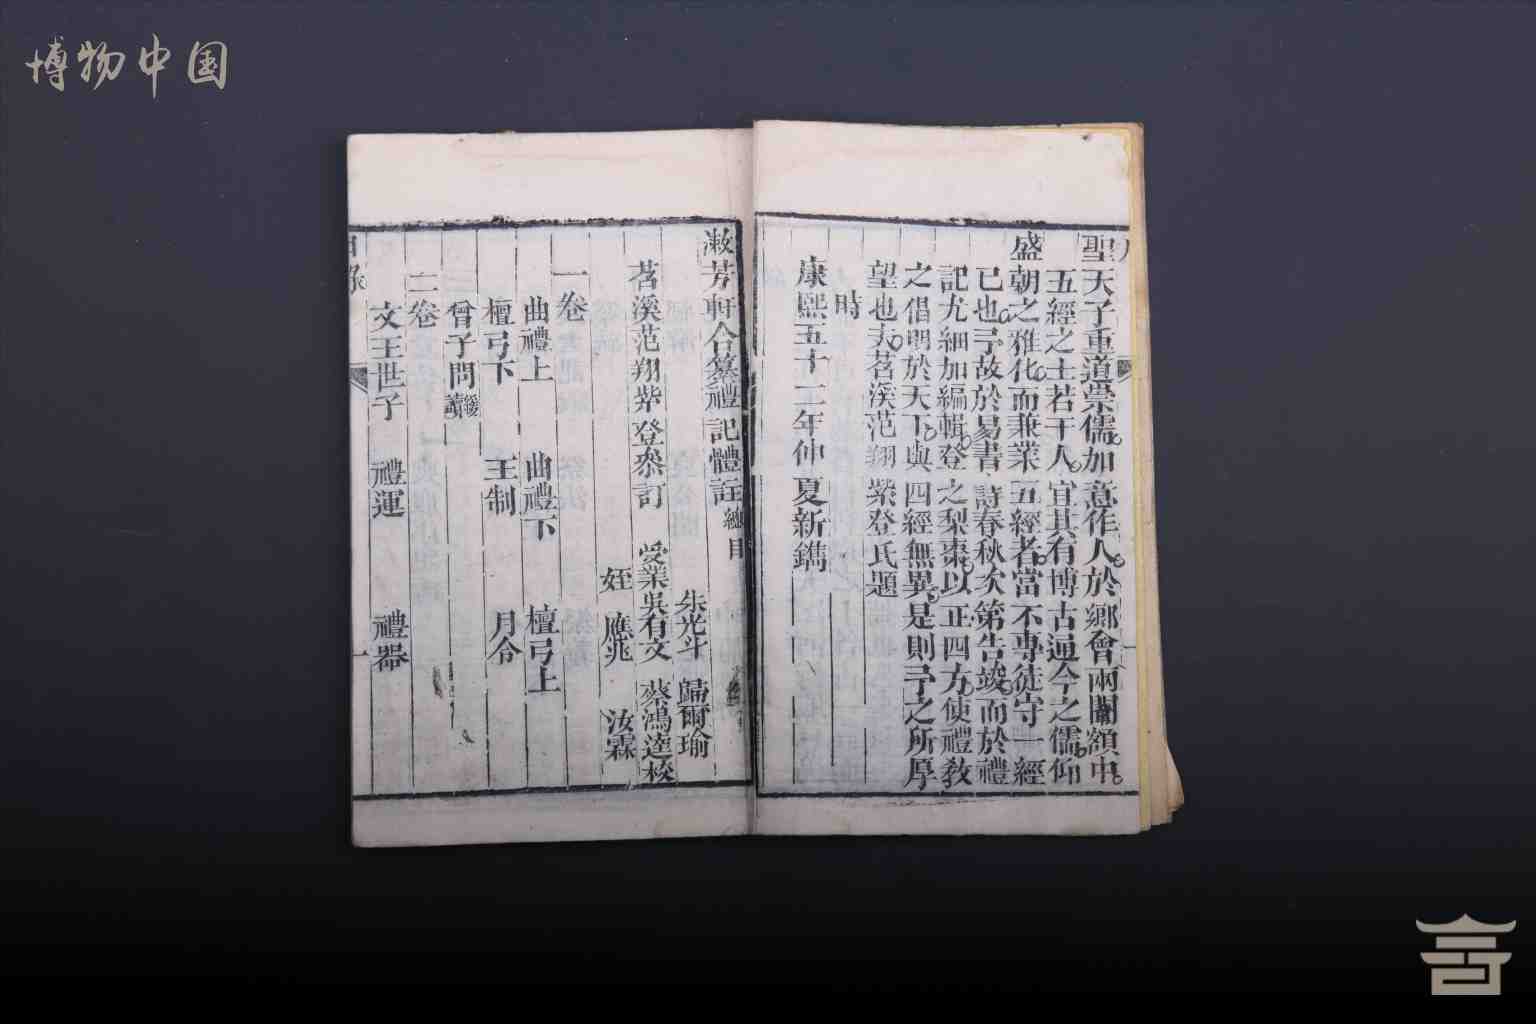 博物中国
聖天子重道崇儒加意作人於鄉會兩闈額中
五經之士若干人宜其有博古通今之儒仰
盛朝之雅化而兼業五經者當不專徒守一經
已也予故於易書詩春秋次第告竣而於禮
記尤細加編輯登之梨棗以正四方使禮敎
之倡明於天下與四經無異是則予之所厚
望也夫苕溪范翔紫登氏題
時
康熙五十二年仲夏新鐫
漱芳軒合纂禮記體註總目
苕溪范翔紫登叅訂
朱光斗 歸爾瑜
受業吳有文 蔡鴻逵校
姪 應兆 汝霖
一卷
曲禮上 曲禮下 檀弓上
檀弓下 王制 月令
曾子問
二卷
文王世子 禮運 禮器
目錄
一